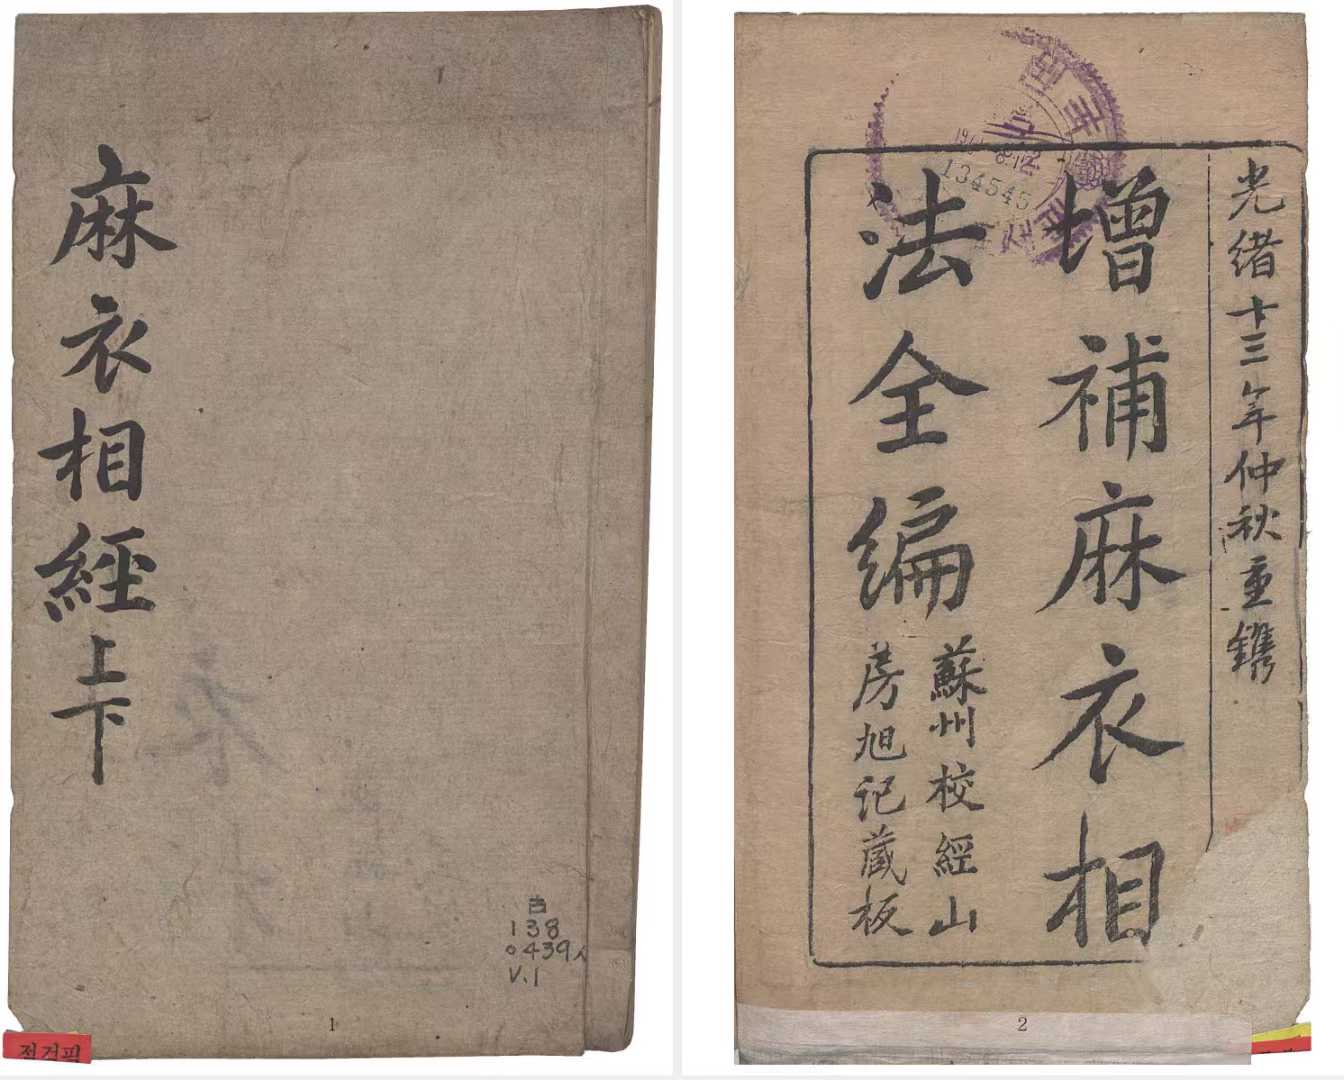 麻衣相經上下
古
138
0439人
V.1
1
점검필
光緒十三年仲秋重鐫
增補麻衣相
法全編
蘇州校經山
房旭記藏板
134545
2